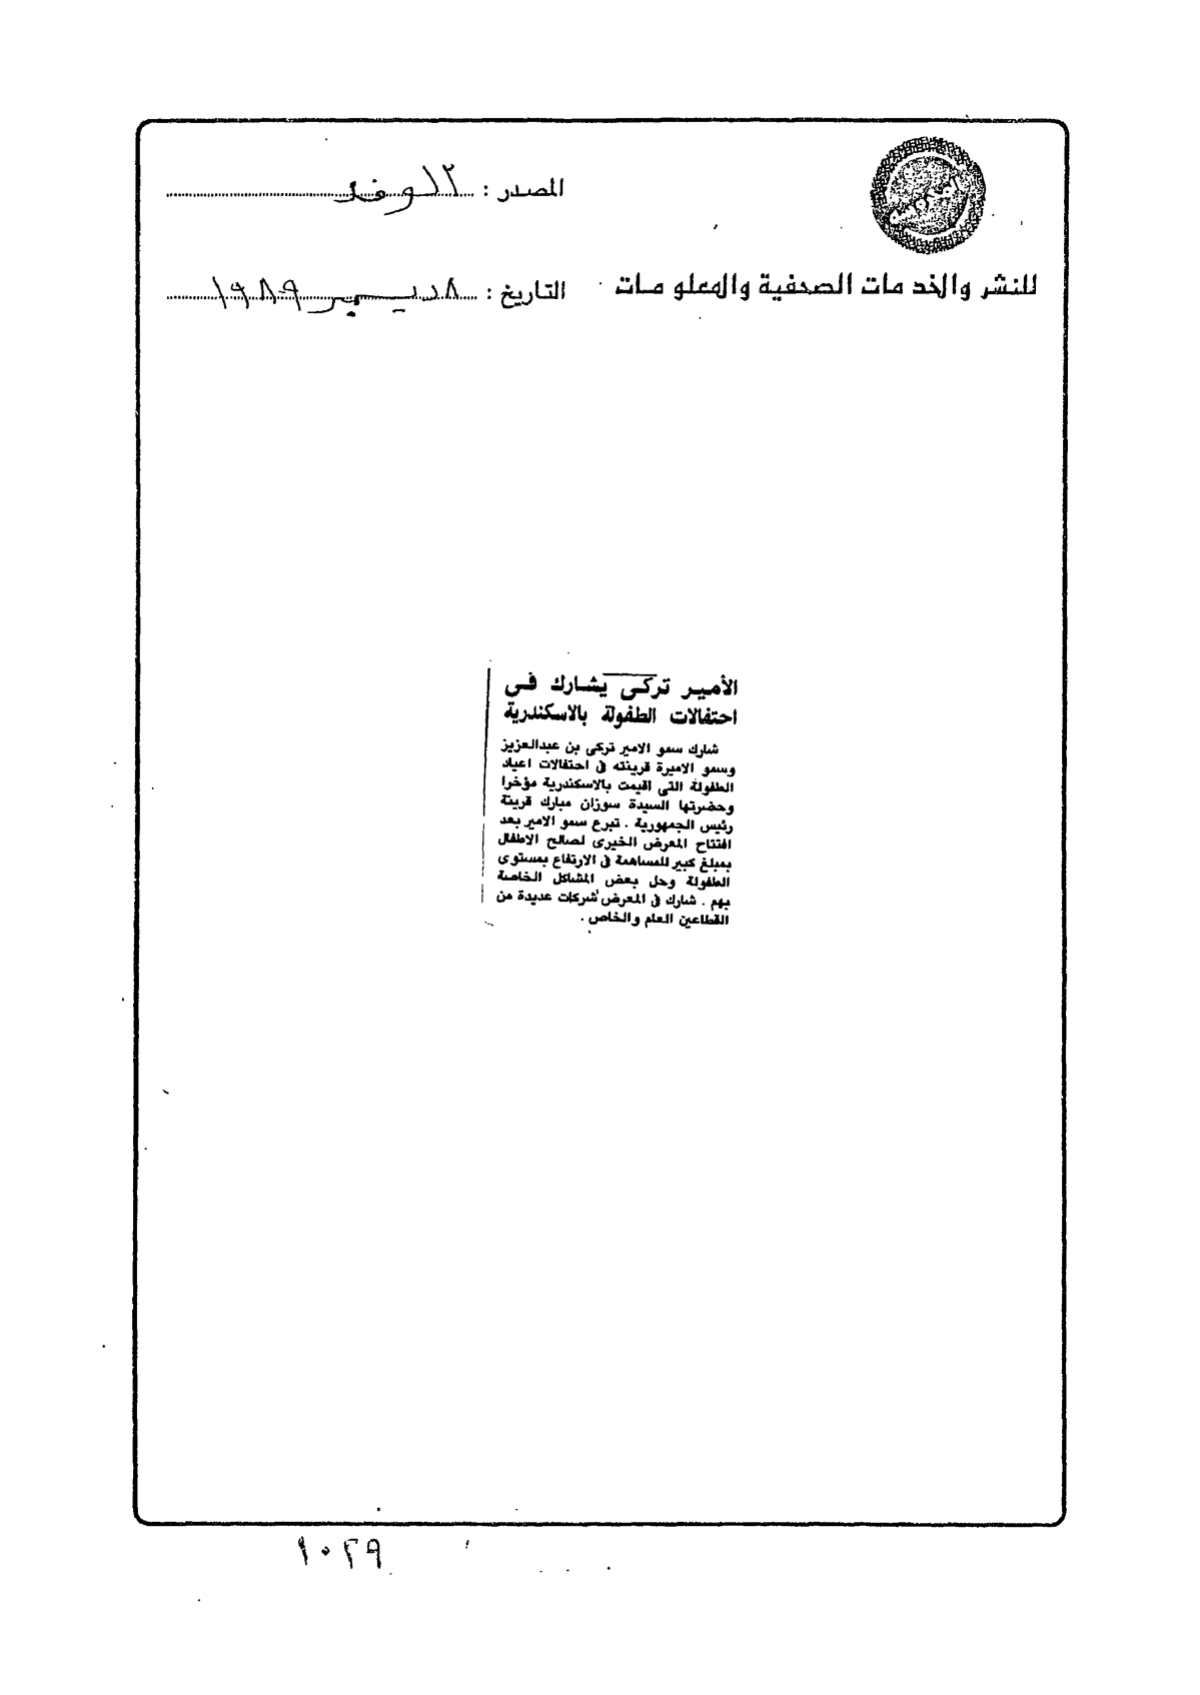 المصدر : الوفد
للنشر والخدمات الصحفية والمعلومات
التاريخ : ٨ ديسمبر ١٩٨٩
الأمير تركى يشارك فى
احتفالات الطفولة بالاسكندرية
شارك سمو الامير تركى بن عبدالعزيز
وسمو الاميرة قرينته فى احتفالات اعياد
الطفولة التى اقيمت بالاسكندرية مؤخرا
وحضرتها السيدة سوزان مبارك قرينة
رئيس الجمهورية . تبرع سمو الامير بعد
افتتاح المعرض الخيرى لصالح الاطفال
بمبلغ كبير للمساهمة فى الارتفاع بمستوى
الطفولة وحل بعض المشاكل الخاصة
بهم . شارك فى المعرض شركات عديدة من
القطاعين العام والخاص .
١٠٢٩